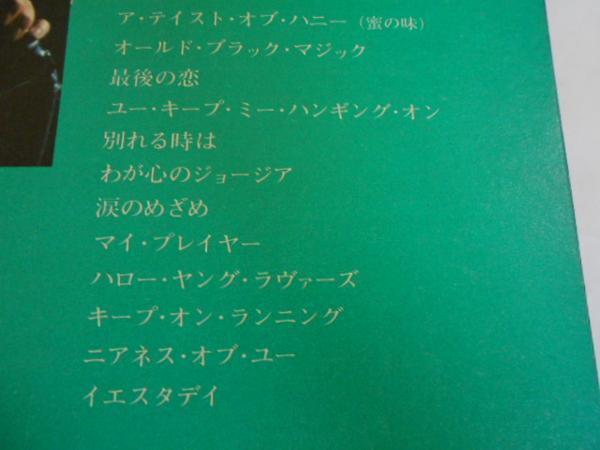 ア・テイスト・オブ・ハニー（蜜の味）
オールド・ブラック・マジック
最後の恋
ユー・キープ・ミー・ハンギング・オン
別れる時は
わが心のジョージア
涙のめざめ
マイ・プレイヤー
ハロー・ヤング・ラヴァーズ
キープ・オン・ランニング
ニアネス・オブ・ユー
イエスタデイ